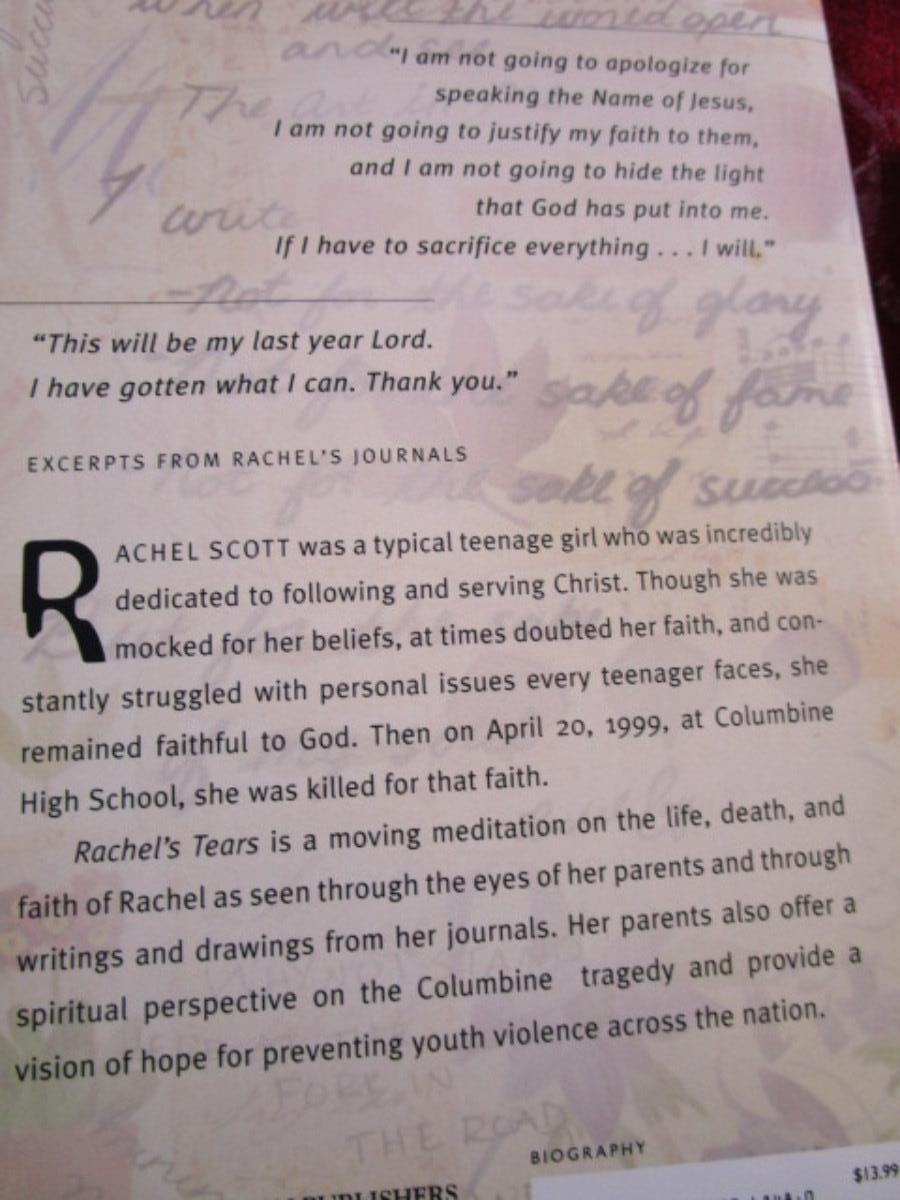 when will the world open
and
"I am not going to apologize for
The art
speaking the Name of Jesus,
I am not going to justify my faith to them,
and I am not going to hide the light
that God has put into me.
write
If I have to sacrifice everything . . . I will."
-Not for the sake of glory
"This will be my last year Lord.
I have gotten what I can. Thank you."
sake of fame
EXCERPTS FROM RACHEL'S JOURNALS
Not for the sake of success
RACHEL SCOTT was a typical teenage girl who was incredibly
dedicated to following and serving Christ. Though she was
mocked for her beliefs, at times doubted her faith, and con-
stantly struggled with personal issues every teenager faces, she
remained faithful to God. Then on April 20, 1999, at Columbine
High School, she was killed for that faith.
Rachel's Tears is a moving meditation on the life, death, and
faith of Rachel as seen through the eyes of her parents and through
writings and drawings from her journals. Her parents also offer a
spiritual perspective on the Columbine tragedy and provide a
vision of hope for preventing youth violence across the nation.
FORK IN
THE ROAD
BIOGRAPHY
$13.99
PUBLISHERS